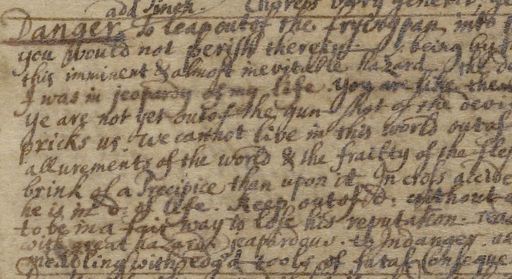 add
Danger. To leap out of the frying pan into
you would not perish thereby. being by
this imminent & almost inevitable hazard. the
I was in jeopardy of my life. you are like them
ye are not yet out of the gun-shot of the devi
pricks us. We cannot live in this world out of
allurements of the world & the frailty of the fles
brink of a Precipice than upon it. In cross accide
he is in d: of life. Keep out of d: without
to be in a fair way to lose his reputation.
with great hazard. jeopardous. to indanger.
medling with edg'd tools of fatal conseque